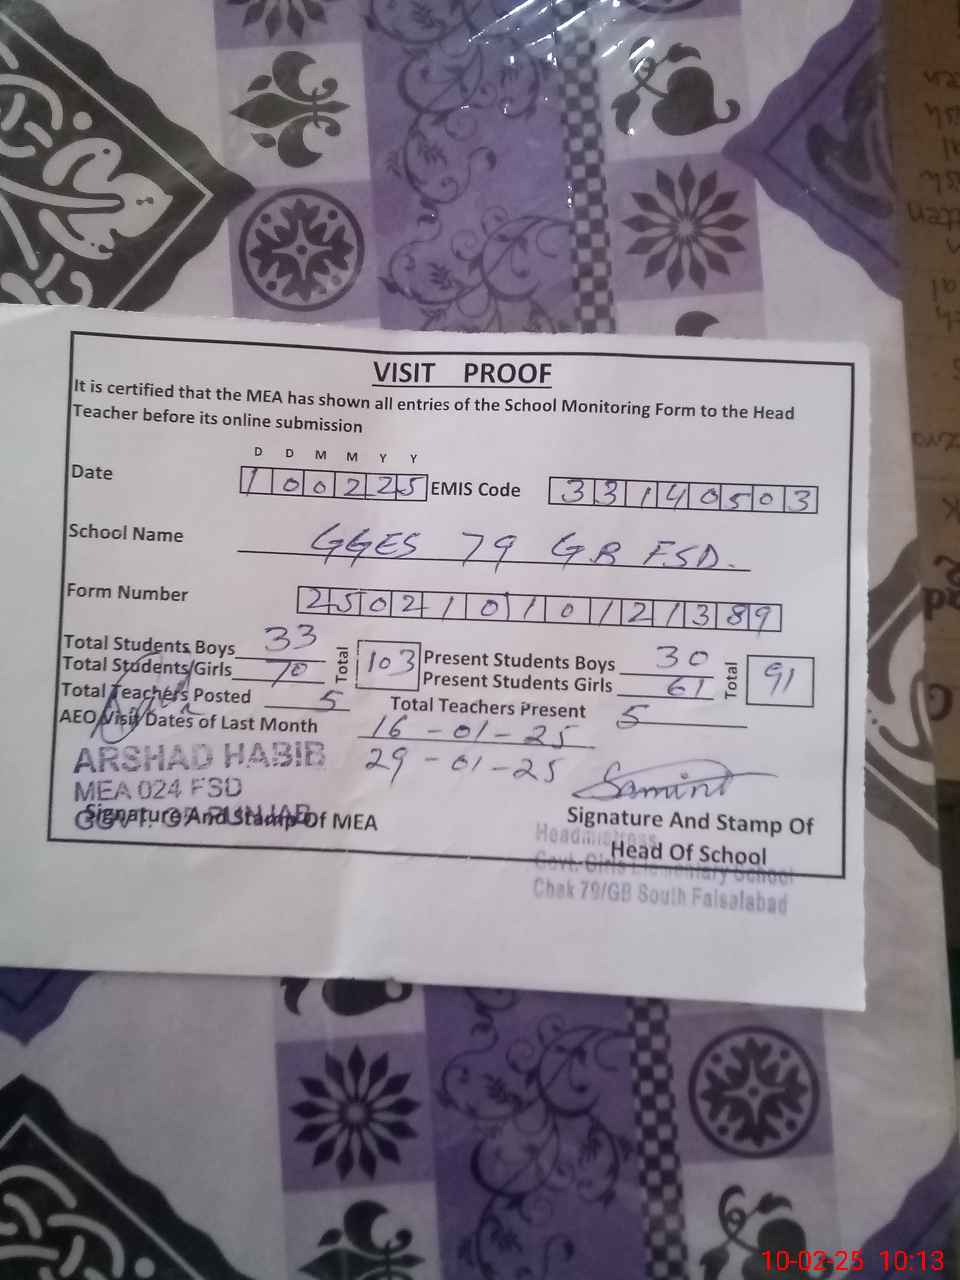 VISIT PROOF
It is certified that the MEA has shown all entries of the School Monitoring Form to the Head
Teacher before its online submission
D D M M Y Y
Date 100225 EMIS Code 33140503
School Name GGES 79 GB FSD.
Form Number 25021010121389
Total Students Boys 33 Total 103 Present Students Boys 30 Total 91
Total Students Girls 70 Present Students Girls 61
Total Teachers Posted 5 Total Teachers Present 5
AEO Visit Dates of Last Month 16-01-25
29-01-25
ARSHAD HABIB
MEA 024 FSD
GOVT. OF PUNJAB
Signature And Stamp Of MEA
Signature And Stamp Of
Head Of School
Headmistress
Govt. Girls Elementary School
Chak 79/GB South Faisalabad
10-02-25 10:13